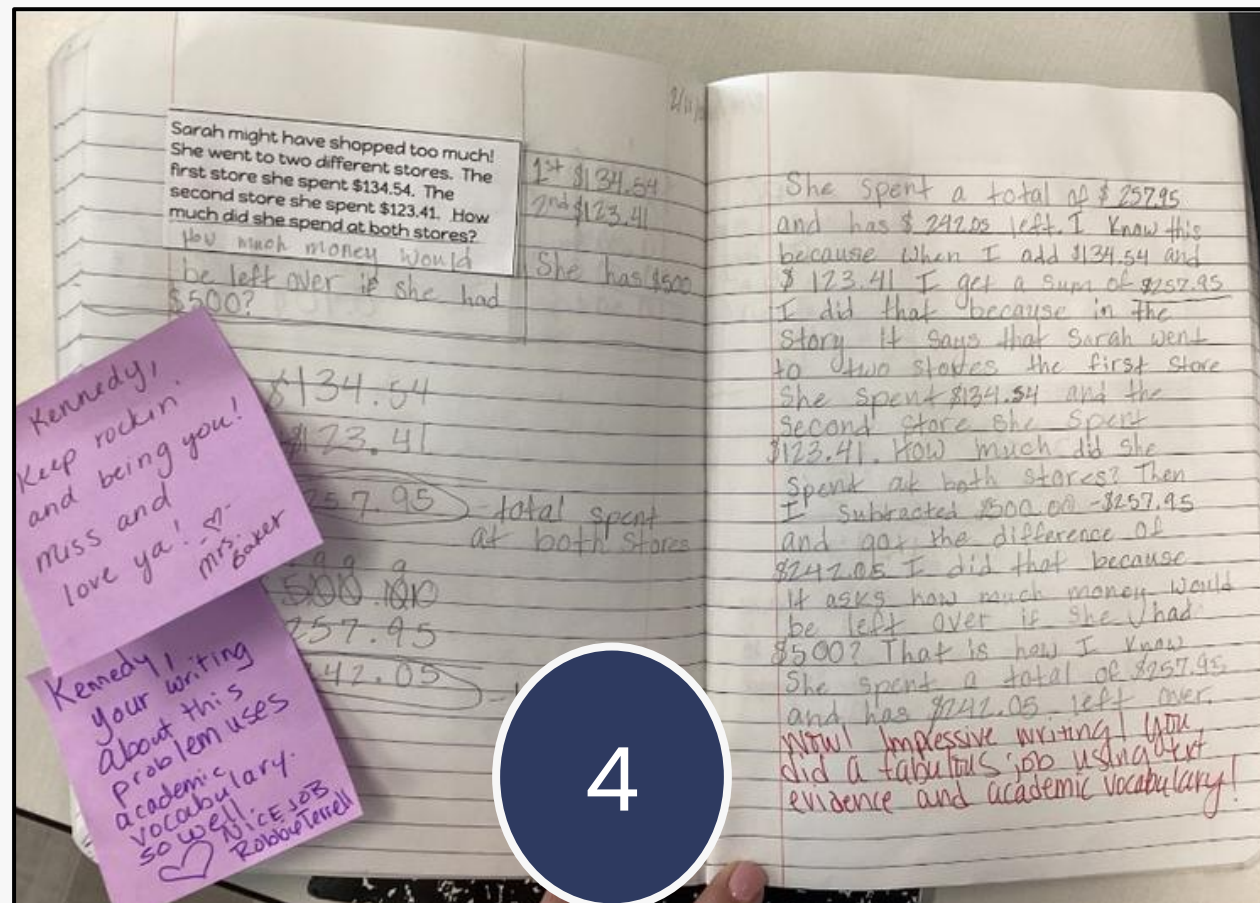 2/11
Sarah might have shopped too much!
She went to two different stores. The
first store she spent $134.54. The
second store she spent $123.41. How
much did she spend at both stores?
How much money would
be left over if she had
$500?
1st $134.54
2nd $123.41
She has $500
$134.54
$123.41
257.95
total spent
at both stores
9 9 9
500.00
257.95
42.05
Kennedy,
Keep rockin
and being you!
miss and
love ya!
Mrs.
Baker
Kennedy,
your writing
about this
problem uses
academic
vocabulary
so well.
NICE JOB
Robbie Terrell
She spent a total of $257.95
and has $242.05 left. I know this
because when I add $134.54 and
$123.41 I get a sum of $257.95
I did that because in the
story it says that Sarah went
to two stores the first store
she spent $134.54 and the
second store she spent
$123.41. How much did she
spent at both stores? Then
I subtracted $500.00 - $257.95
and got the difference of
$242.05 I did that because
it asks how much money would
be left over if she had
$500? That is how I know
She spent a total of $257.95
and has $242.05 left over.
Wow! Impressive writing! You
did a fabulous job using text
evidence and academic vocabulary!
4